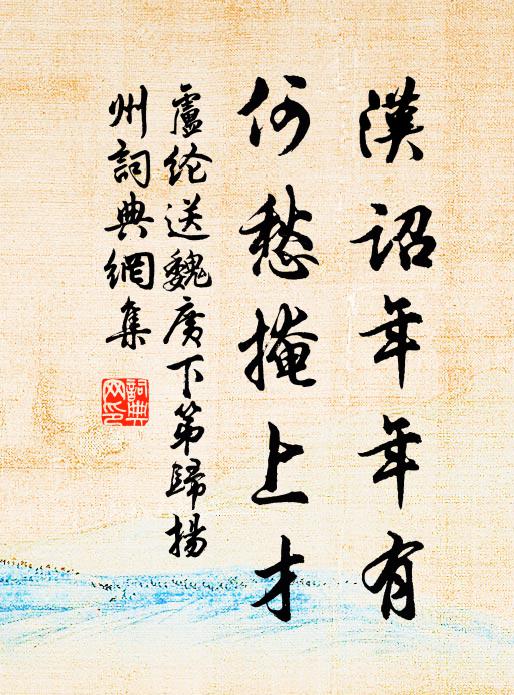 漢詔年年有
何愁掩上才
盧纶送魏廣下第歸揚
州詞典網集
詞典
网印